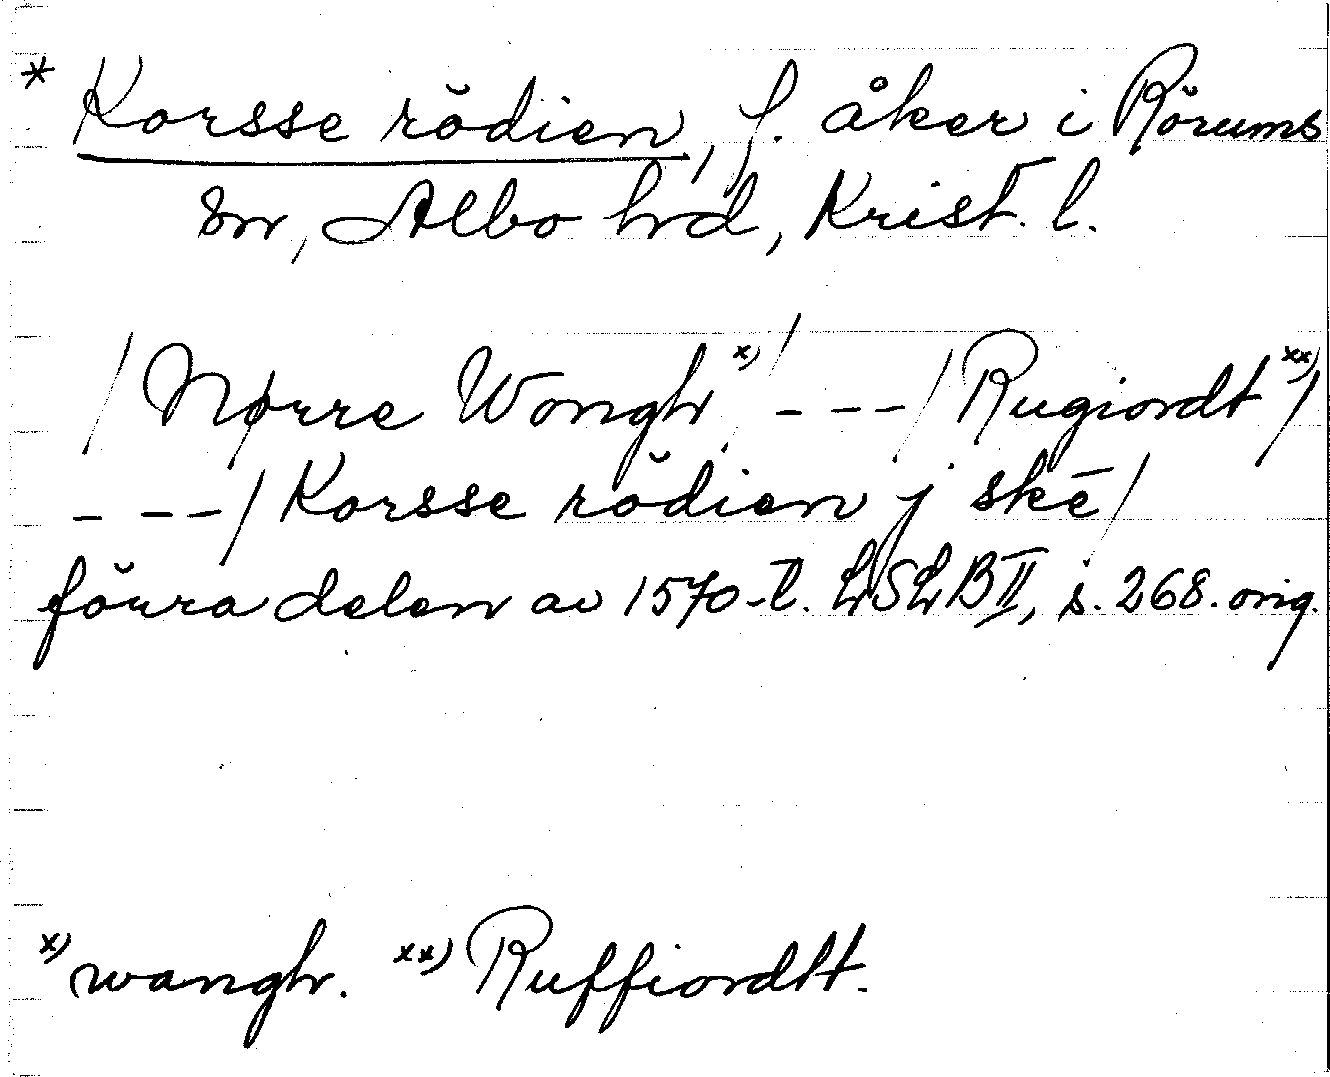 * Korsse rödien, f. åker i Rörums
sn, Albo hd, Krist. l.
/Nørre Wongh x)/ - - - /Rugiordt xx)/
- - - / Korsse rödien j skē /
förra delen av 1570-t. LSLB II, s. 268. orig.
x) wangh. xx) Ruffiordtt.